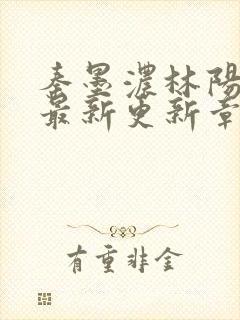 秦墨濃林陽
最新更新章
有重非金